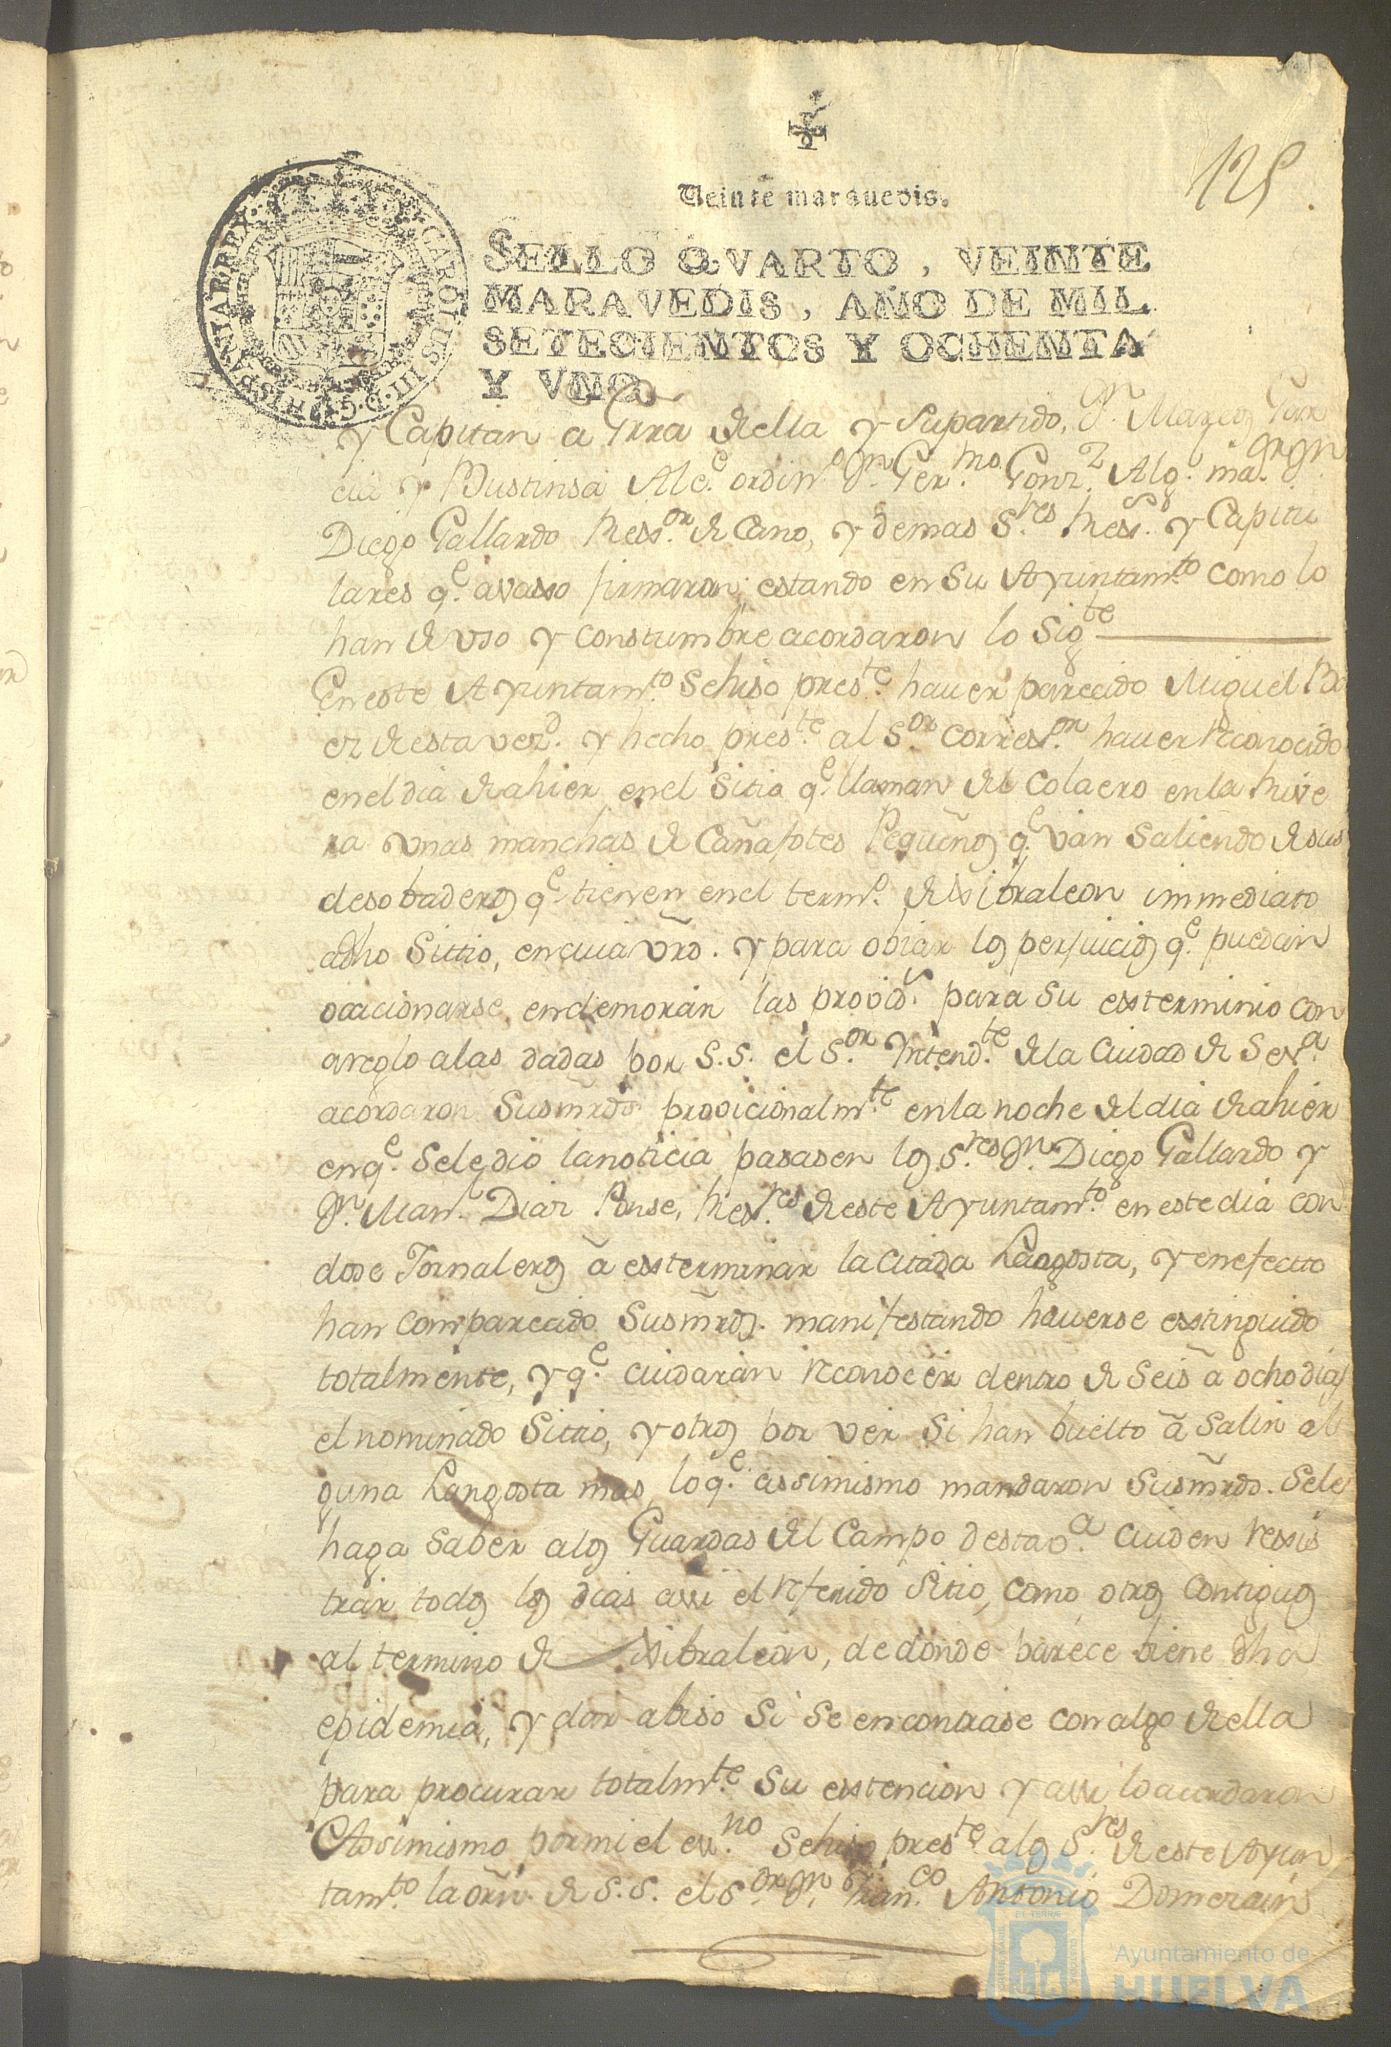 125
Veinte marauedis.
SELLO QVARTO, VEINTE
MARAVEDIS, AÑO DE MIL
SETECIENTOS Y OCHENTA
Y VNO.
CAROLUS III D.G. HISPANIAR REX
y Capitan a Grra della y Supartido, Dn. Marcos Gar
cia y Bustinsa Alce. ordino. Dn. Germo. Gonz. Alg. mar. Dn.
Diego Gallardo Ressor. de Cano, y demas Sres. Ress. y Capitu
lares qe. avaxo firmaron; estando en Su Ayuntamto. como lo
han de uso y constumbre acordaron lo Sigte
En este Ayuntamto. Sehiso preste. haver parecido Miguel
de esta vezd. y hecho preste. al Sor. Corresor. haver reconocido
en el dia de ahier en el Sitio qe. llaman del Colaero en la Rive
ra unas manchas de Cañafotes Pequeños qe. van saliendo de sus
desobaderos qe. tienen en el termo. de Gibraleon immediato
a dho Sitio, en cuia vrd. y para obiar los perjuicios qe. puedan
occacionarse en demorar las provids. para su esterminio con
areglo alas dadas por S.S. el Sor. Yntendte. de la Ciudad de Seva.
acordaron Susmrds. provicionalmte. en la noche del dia de ahier
en qe. Sele dio la noticia pasasen los Sres. Dn. Diego Gallardo y
Dn. Man. Diaz Ponse, Resres. de este Ayuntamto. en este dia con
dose Jornaleros á exterminar la citada Langosta, y en efecto
han comparecido Susmrds. manifestando haverse esstinguido
totalmente, y qe. cuidaran reconocer dentro de Seis á ocho dias
el nominado Sitio, y otros por ver si han buelto á Salir al
guna Langosta mas, lo qe. assimismo mandaron Susmrds. Sele
haga Saber a los Guardas del Campo desta va. cuiden ressis
trar todos los dias assi el referido Sitio, como otros contiguos
al termino de Gibraleon, de donde parece biene dha
epidemia, y dar abiso Si Se encontrase con algo de ella
para procurar totalmte. Su esstencion y assi lo acordaron
Assimismo por mi el esno. Sehiso preste a los Sres. de este Ayun
tamto. la orn. de S.S. el Sor. Dn. Franco. Antonio Domerain
Ayuntamiento de
HUELVA